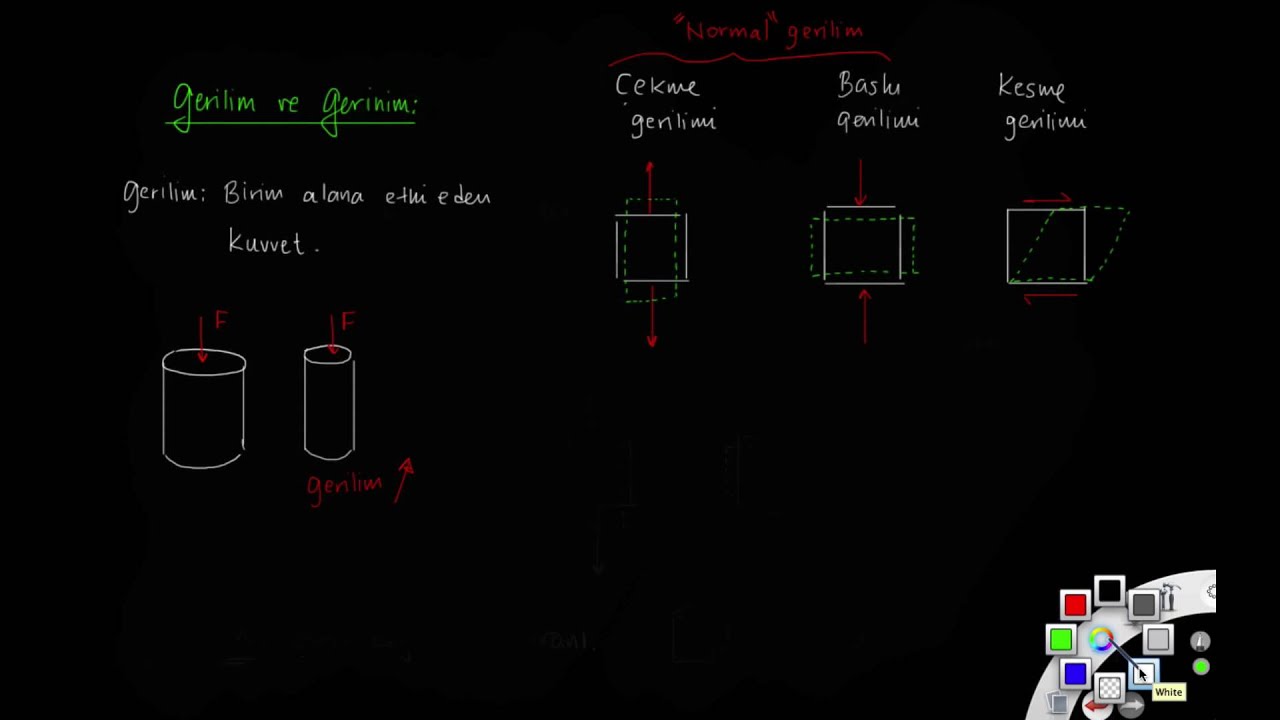 "Normal" gerilim
Gerilim ve Gerinim:
Çekme
gerilimi
Baskı
gerilimi
Kesme
gerilimi
gerilim: Birim alana etki eden
kuvvet.
F
F
gerilim
White